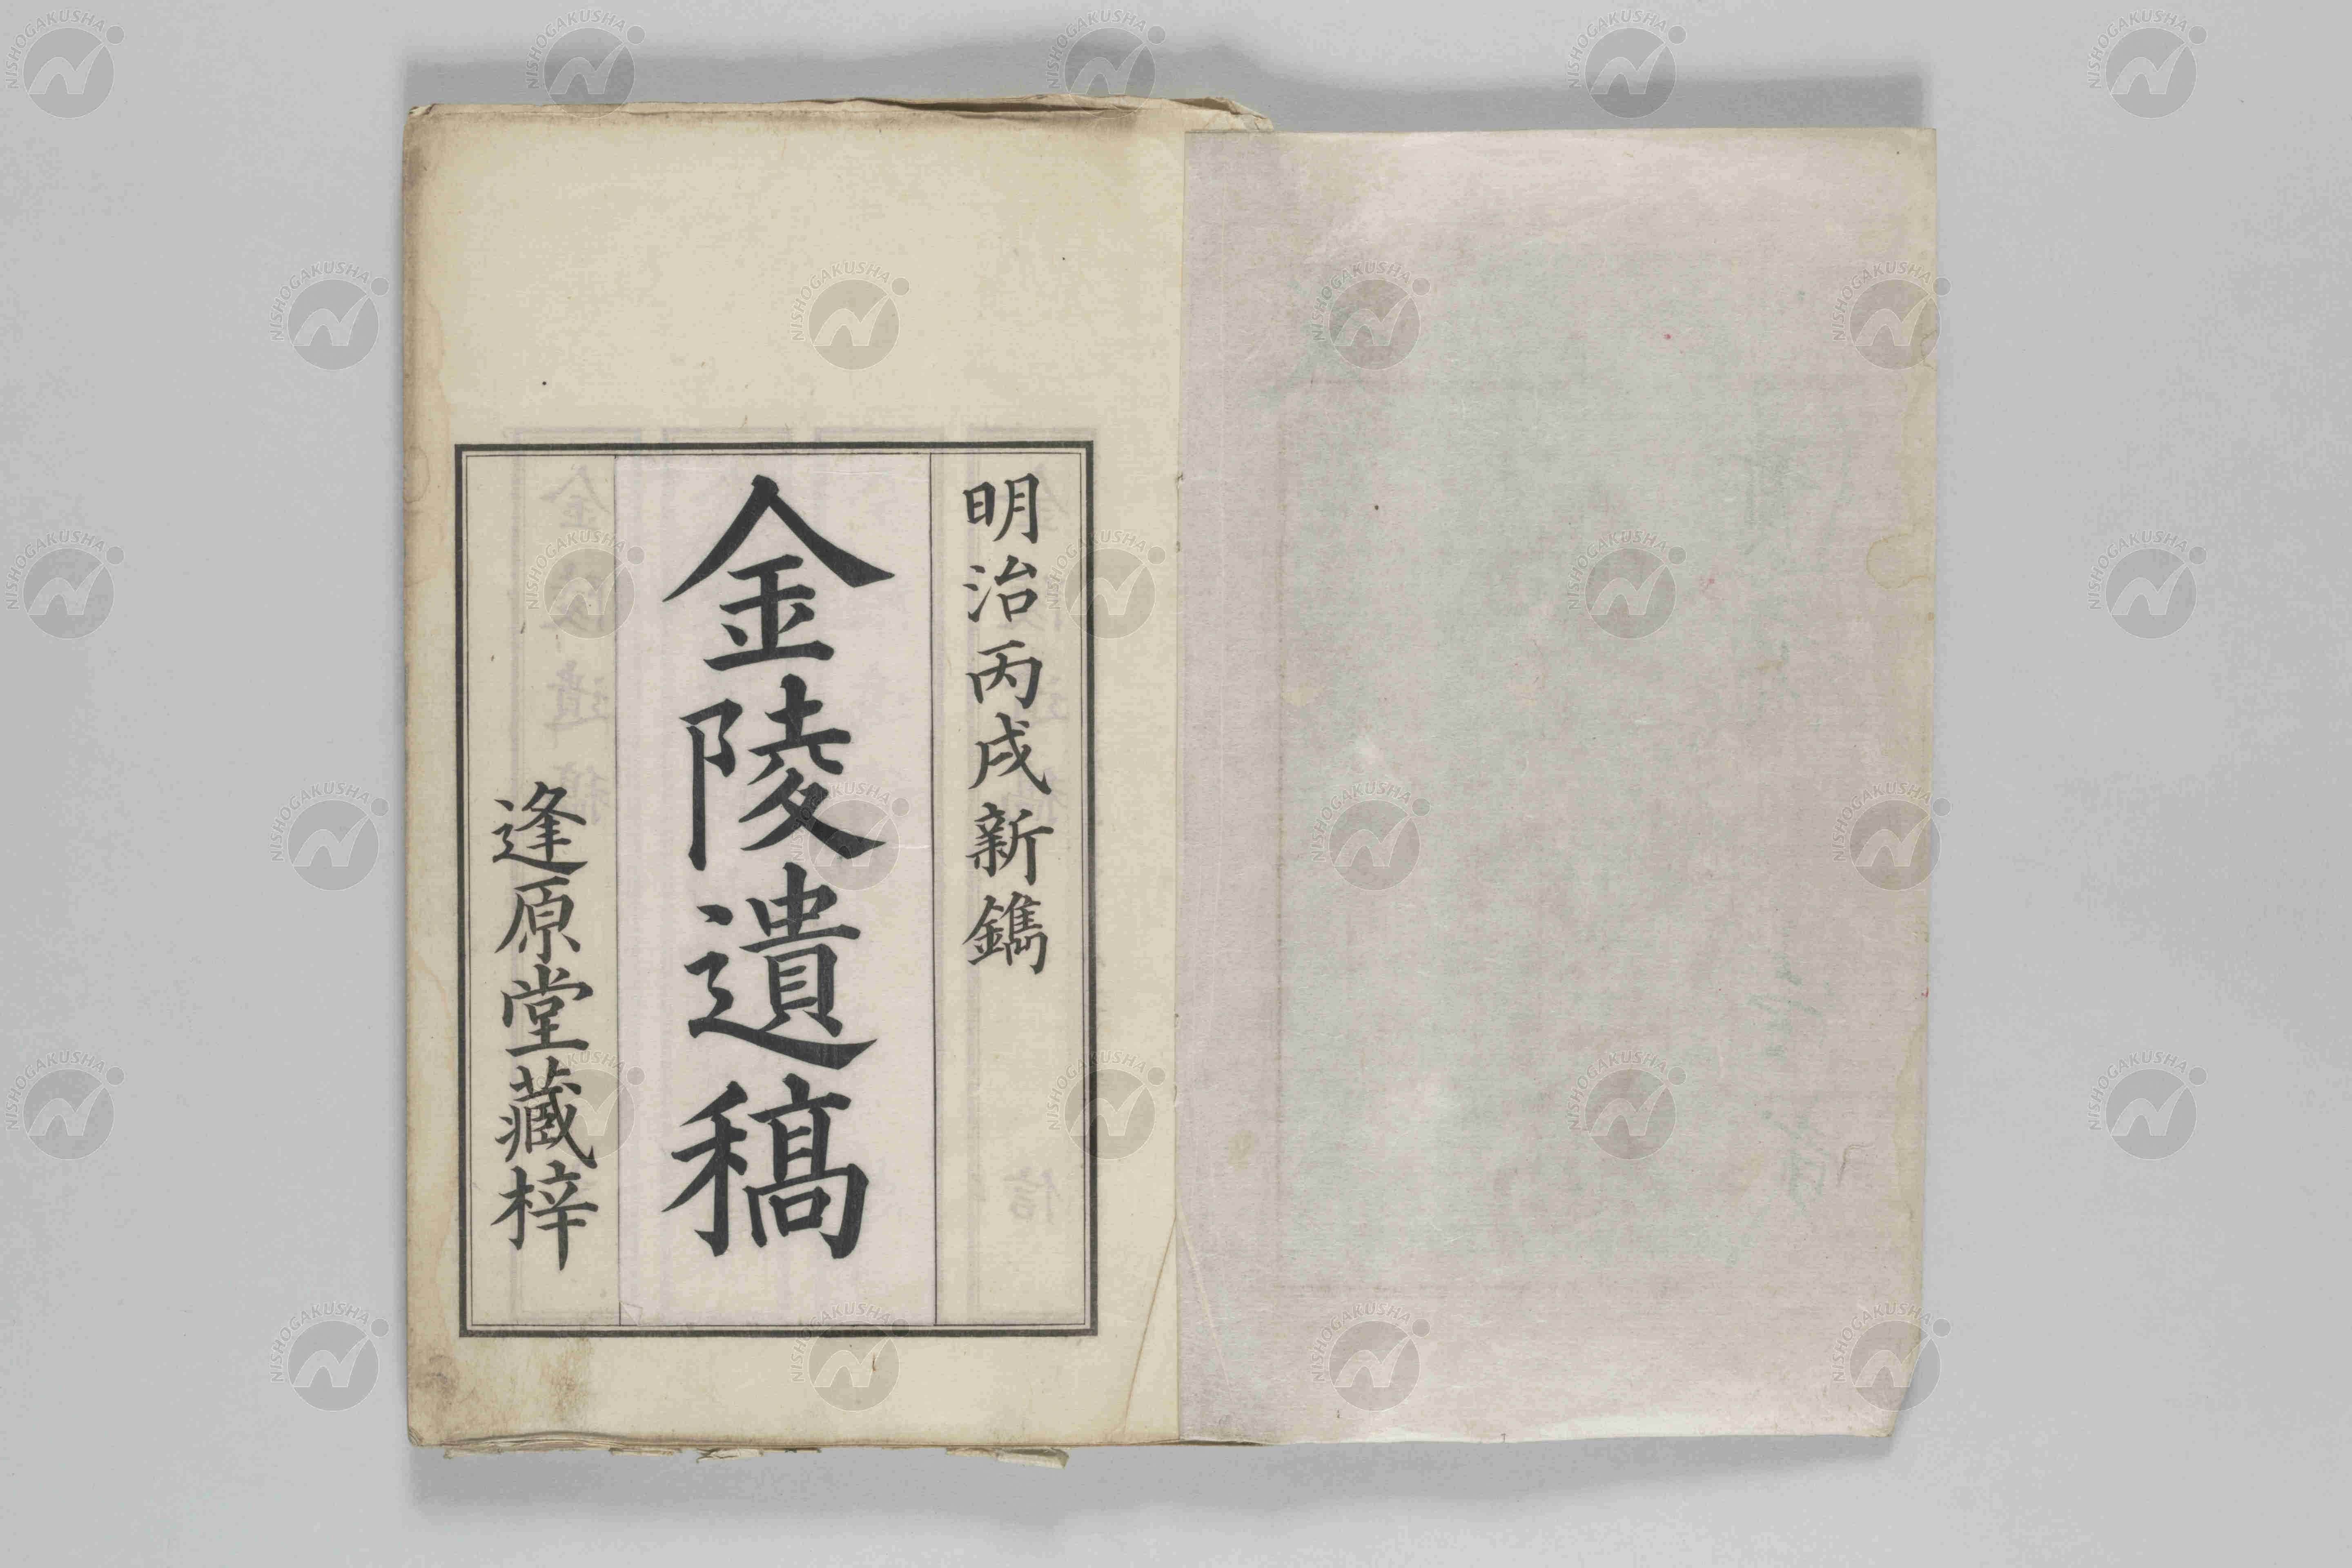 明治丙戌新鐫
金陵遺稿
逢原堂藏梓
NISHOGAKUSHA